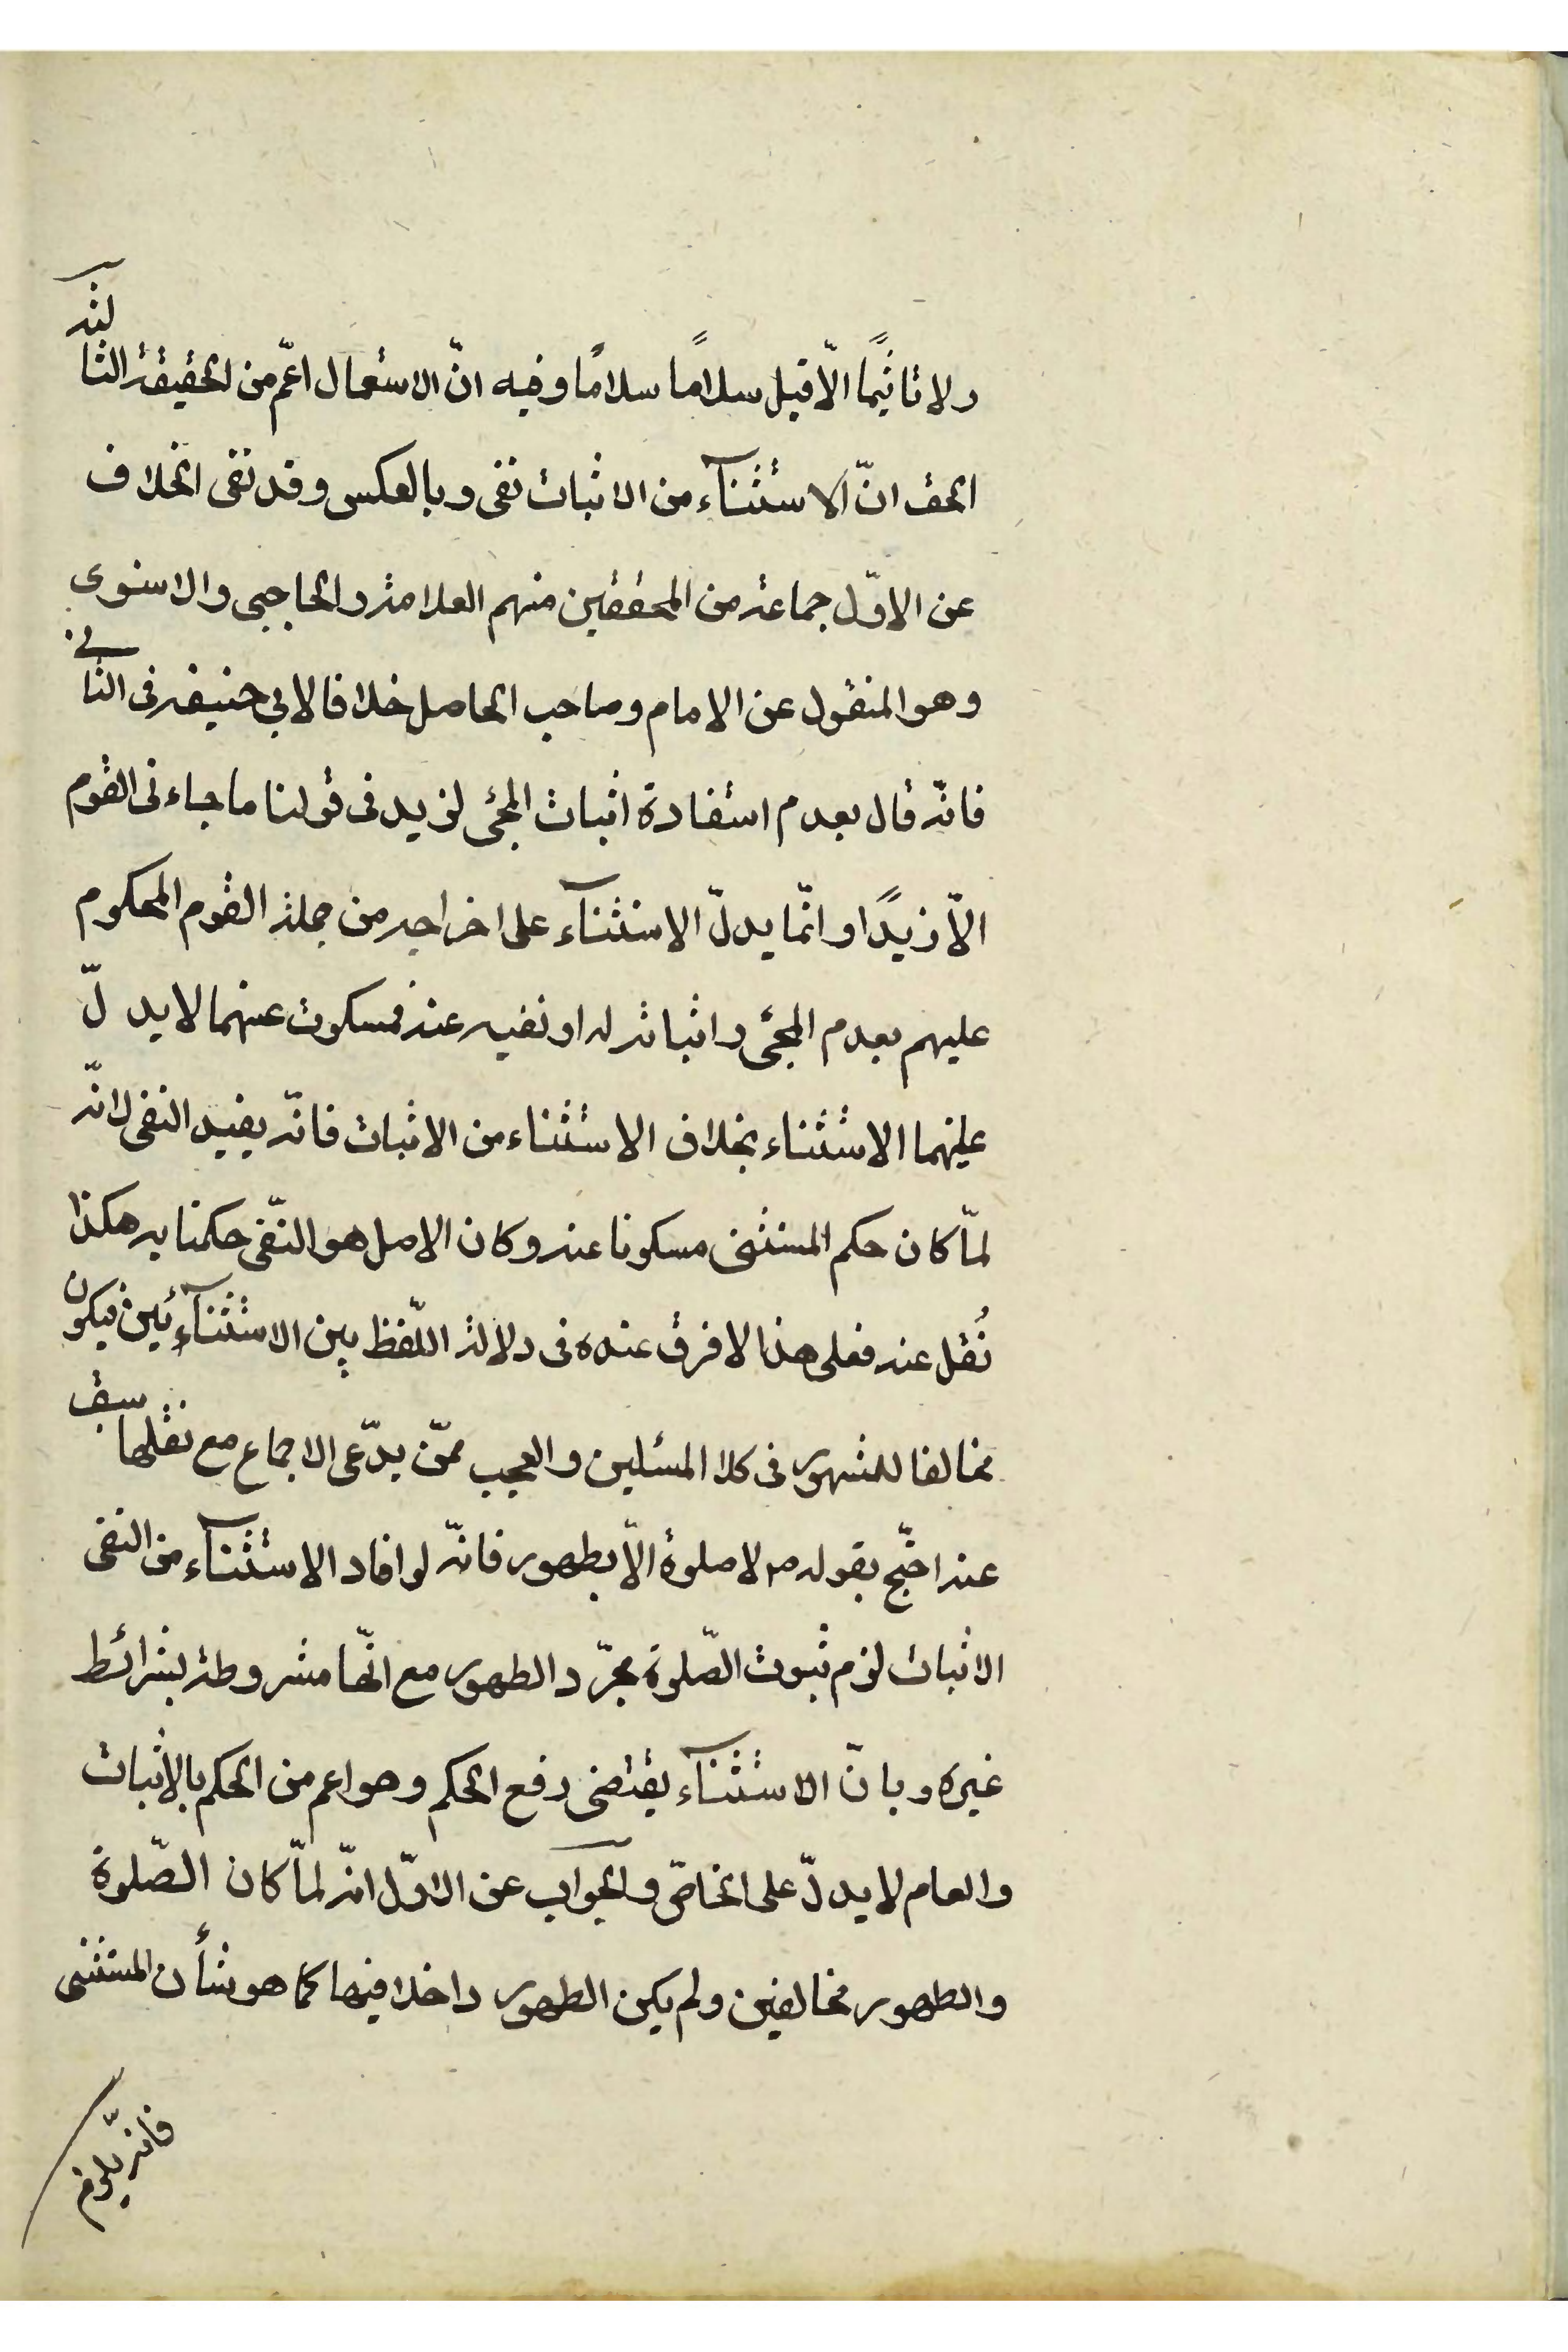 ولا تاثيمًا الّا قيلا سلامًا سلامًا وفيه انّ الاستعمال اعّم من الحقيقة الثالثة
الحق انّ الاستثنآء من الاثبات نفى وبالعكس وقد نفى الخلاف
عن الاوّل جماعة من المحققين منهم العلامة والحاجبى والاسنوى
وهو المنقول عن الامام وصاحب الحاصل خلافا لابي حنيفه فى الثانى
فانّه قال بعدم استفادة اثبات المجئ لزيد فى قولنا ما جاءنى القوم
الّا زيدًا وانّما يدلّ الاستثنآء على اخراجه من جملة القوم المحكوم
عليهم بعدم المجئ واثباته له او نفيه عنه فمسكوت عنهما لا يدلّ
عليهما الاستثناء بخلاف الاستثناء من الاثبات فانّه يفيد النفى لانّه
لمّا كان حكم المستثنى مسكوتا عنه وكان الاصل هو النّفى حكمنا به هكذا
نُقل عنه فعلى هذا لا فرق عنده فى دلالة اللّفظ بين الاستثنآئين فيكون
مخالفا للمشهور فى كلا المسئلتين والعجب ممّن يدّعى الاجماع مع نقلها سبق
عنه احتّج بقوله ص لا صلوة الّا بطهور فانّه لو افاد الاستثنآء من النفى
الاثبات لزم ثبوت الصّلوة بمجرّد الطهور مع انّها مشروطة بشرائط
غيره وبانّ الاستثنآء يقتضى رفع الحكم وهو اعم من الحكم بالإثبات
والعام لا يدلّ على الخاصّ والجواب عن الاوّل انّه لمّا كان الصّلوة
والطهور مخالفين ولم يكن الطهور داخلا فيها كما هو شأن المستثنى
فانه يلزم